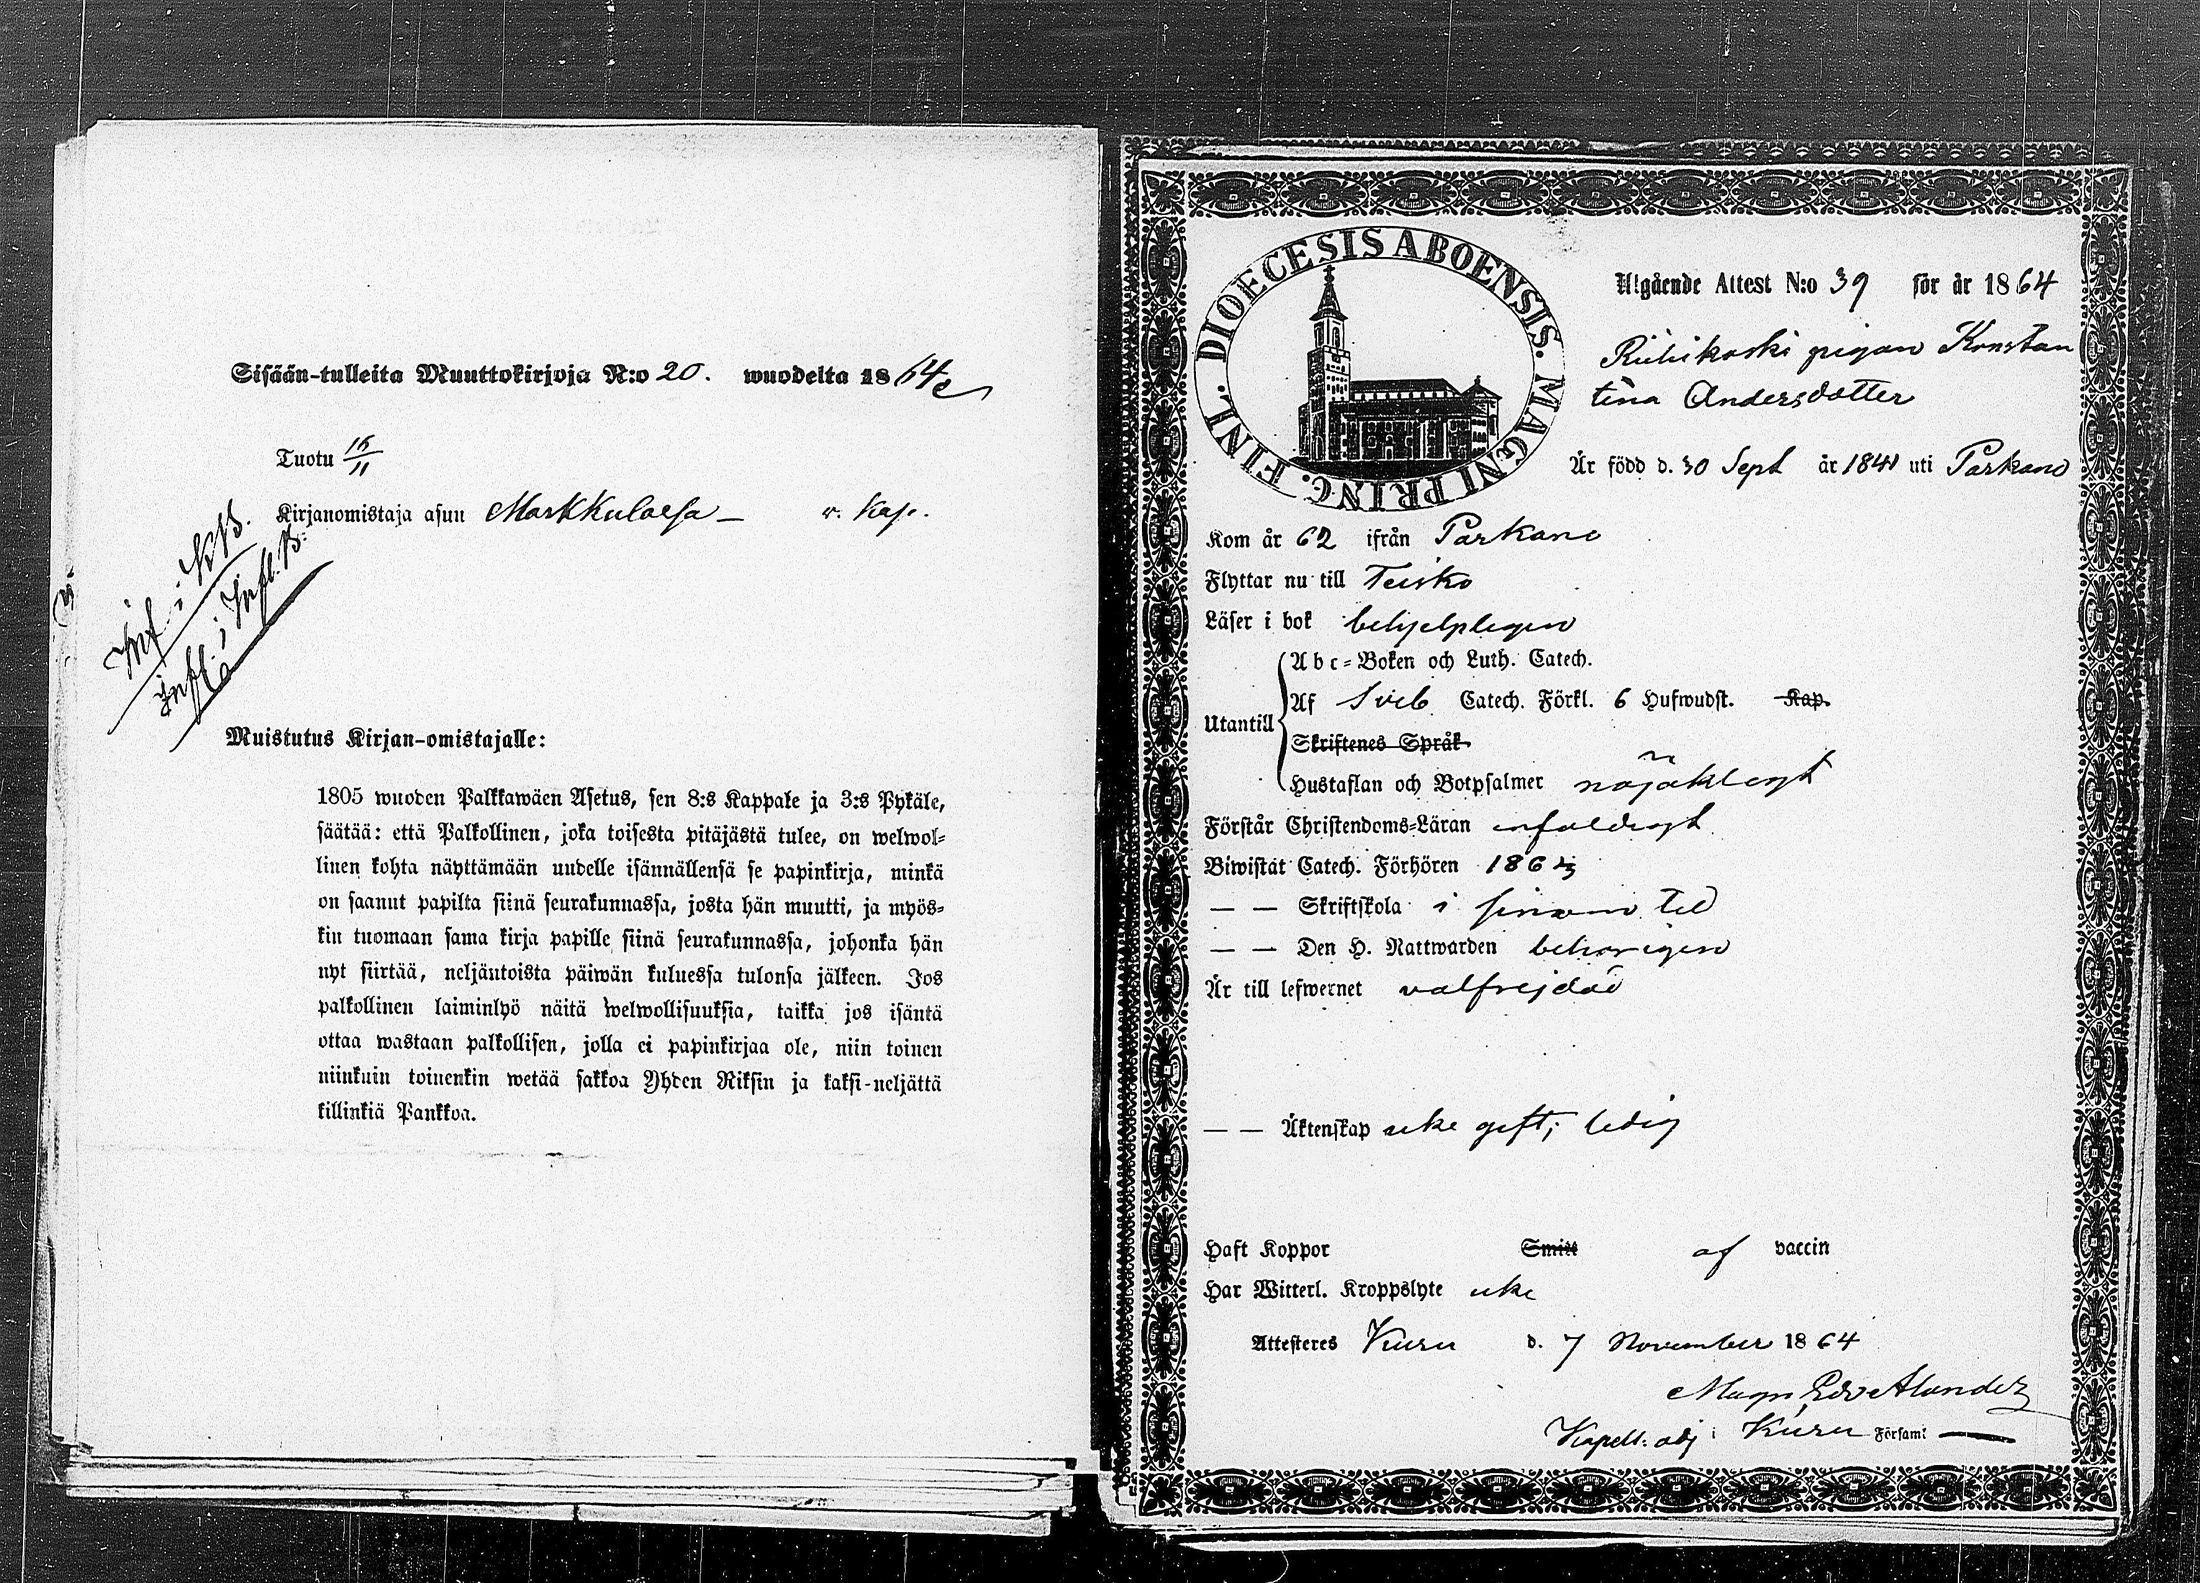 Sisään-tulleita Muuttokirjoja N:o 20. wuodelta 1864
Tuotu 16/11
Kirjanomistaja asuu Markkulassa — v. Kap.
Inf. i KB.
Infl. i Infl. B.
Muistutus Kirjan-omistajalle:
1805 wuoden Palkkawäen Asetus, sen 8:s Kappale ja 3:s Pykäle,
säätää: että Palkollinen, joka toisesta pitäjästä tulee, on welwol=
linen kohta näyttämään uudelle isännällensä se papinkirja, minkä
on saanut papilta siinä seurakunnassa, josta hän muutti, ja myös=
kin tuomaan sama kirja papille siinä seurakunnassa, johonka hän
nyt siirtää, neljäntoista päiwän kuluessa tulonsa jälkeen. Jos
palkollinen laiminlyö näitä welwollisuuksia, taikka jos isäntä
ottaa wastaan palkollisen, jolla ei papinkirjaa ole, niin toinen
niinkuin toinenkin wetää sakkoa Yhden Riksin ja kaksi-neljättä
killinkiä Pankkoa.
DIOECESIS ABOENSIS. MAGNI PRINC. FINL.
Utgående Attest N:o 39 för år 1864
Riihikoski pigan Konstan
tina Andersdotter
Är född d. 30 Sept år 1841 uti Parkano
Kom år 62 ifrån Parkano
Flyttar nu till Teisko
Läser i bok behjelpligen
Utantill
Abc=Boken och Luth. Catech.
Af Sveb Catech. Förkl. 6 Hufwudst. Kap.
Skriftenes Språk
Hustaflan och Botpsalmer nöjaktligt
Förstår Christendoms=Läran enfaldigt
Biwistat Catech. Förhören 1864
— — Skriftskola i sinom tid
— — Den H. Nattwarden behörigen
Är till lefwernet välfrejdad
— — Äktenskap icke gift; ledig
Haft Koppor Smitt af vaccin
Har Witterl. Kroppslyte icke
Attesteres Kuru d. 7 November 1864
Magn Edv Alander
Kapell: adj i Kuru Församl